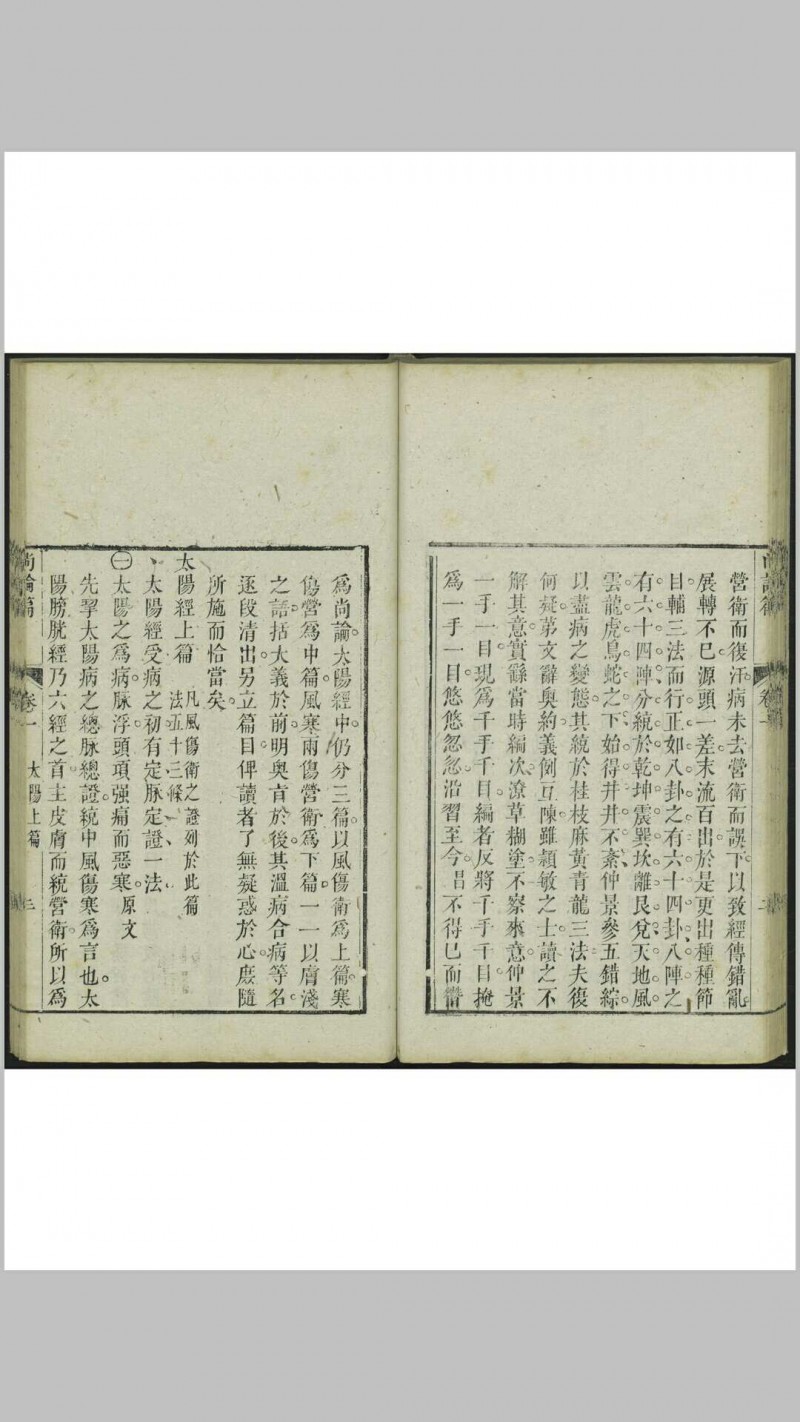 營衛而復汗病未去營衛而誤下以致經傳錯亂
展轉不已源頭一差末流百出於是更出種種節
目輔三法而行正如八卦之有六十四卦八陣之
有六十四陣分統於乾坤震巽坎離艮兌天地風
雲龍虎鳥蛇之下始得井井不紊仲景參五錯綜
以盡病之變態其統於桂枝麻黃青龍三法夫復
何疑第文辭奥約義例互陳雖穎敏之士讀之不
解其意實繇當時編次潦草糊塗不察來意仲景
一手一目現爲千手千目編者反將千手千目掩
爲一手一目悠悠忽忽沿習至今昌不得已而僭
爲尚論太陽經中仍分三篇以風傷衛爲上篇寒
傷營爲中篇風寒兩傷營衛爲下篇一一以膚淺
之語括大義於前明奥旨於後其溫病合病等名
逐段清出另立篇目俾讀者了無疑惑於心庶隨
所施而恰當矣
太陽經上篇 凡風傷衛之證列於此篇
法五十三條
太陽經受病之初有定脉定證一法
㊀太陽之爲病脉浮頭項强痛而惡寒原文
先挈太陽病之總脉總證統中風傷寒爲言也太
陽膀胱經乃六經之首主皮膚而統營衛所以爲
尚論篇 卷一 太陽上篇 三